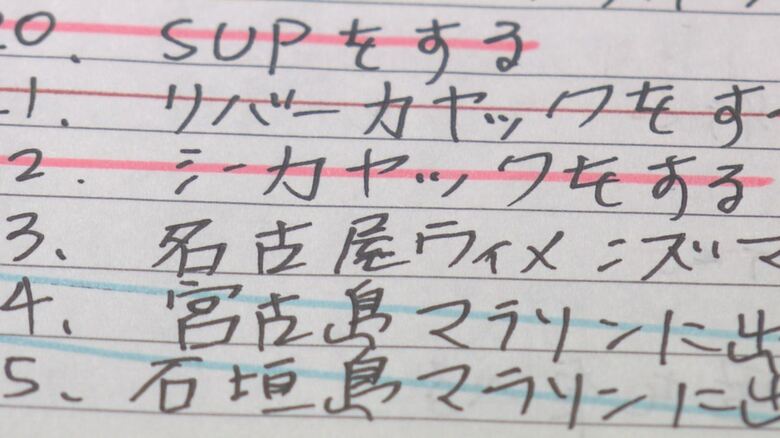 0. SUPをする
1. リバーカヤックをす
2. シーカヤックをする
3. 名古屋ライメンズマ
4. 宮古島マラソンに出
5. 石垣島マラソンに出